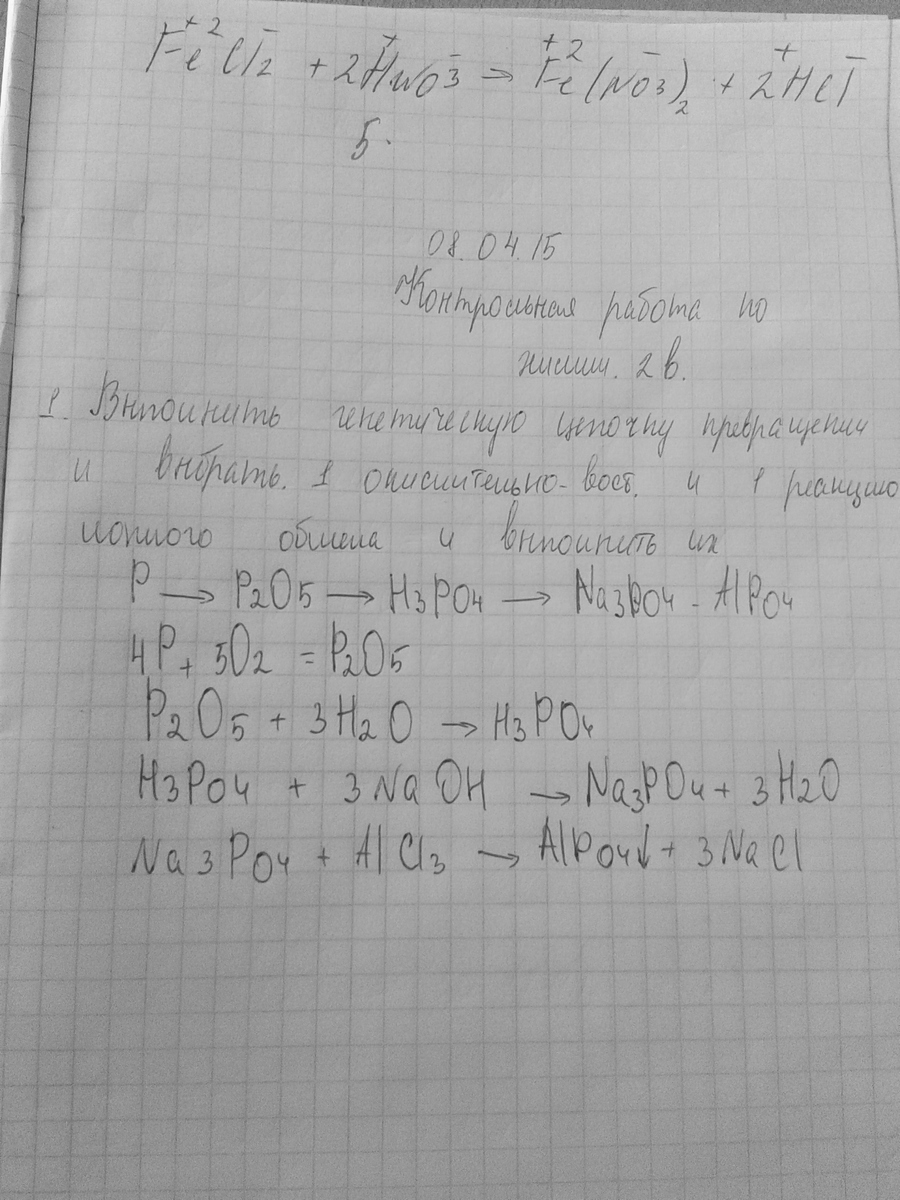 Fe⁺²Cl⁻₂ + 2H⁺NO₃⁻ → Fe⁺²(NO₃⁻)₂ + 2H⁺Cl⁻
5.
08.04.15
Контрольная работа по
химии. 2в.
1. Выполнить генетическую цепочку превращении
и выбрать. 1 окислительно-вост. и 1 реакцию
ионного обмена и выполнить их
P → P2O5 → H3PO4 → Na3PO4 - AlPO4
4P + 5O2 = P2O5
P2O5 + 3H2O → H3PO4
H3PO4 + 3NaOH → Na3PO4 + 3H2O
Na3PO4 + AlCl3 → AlPO4↓ + 3NaCl